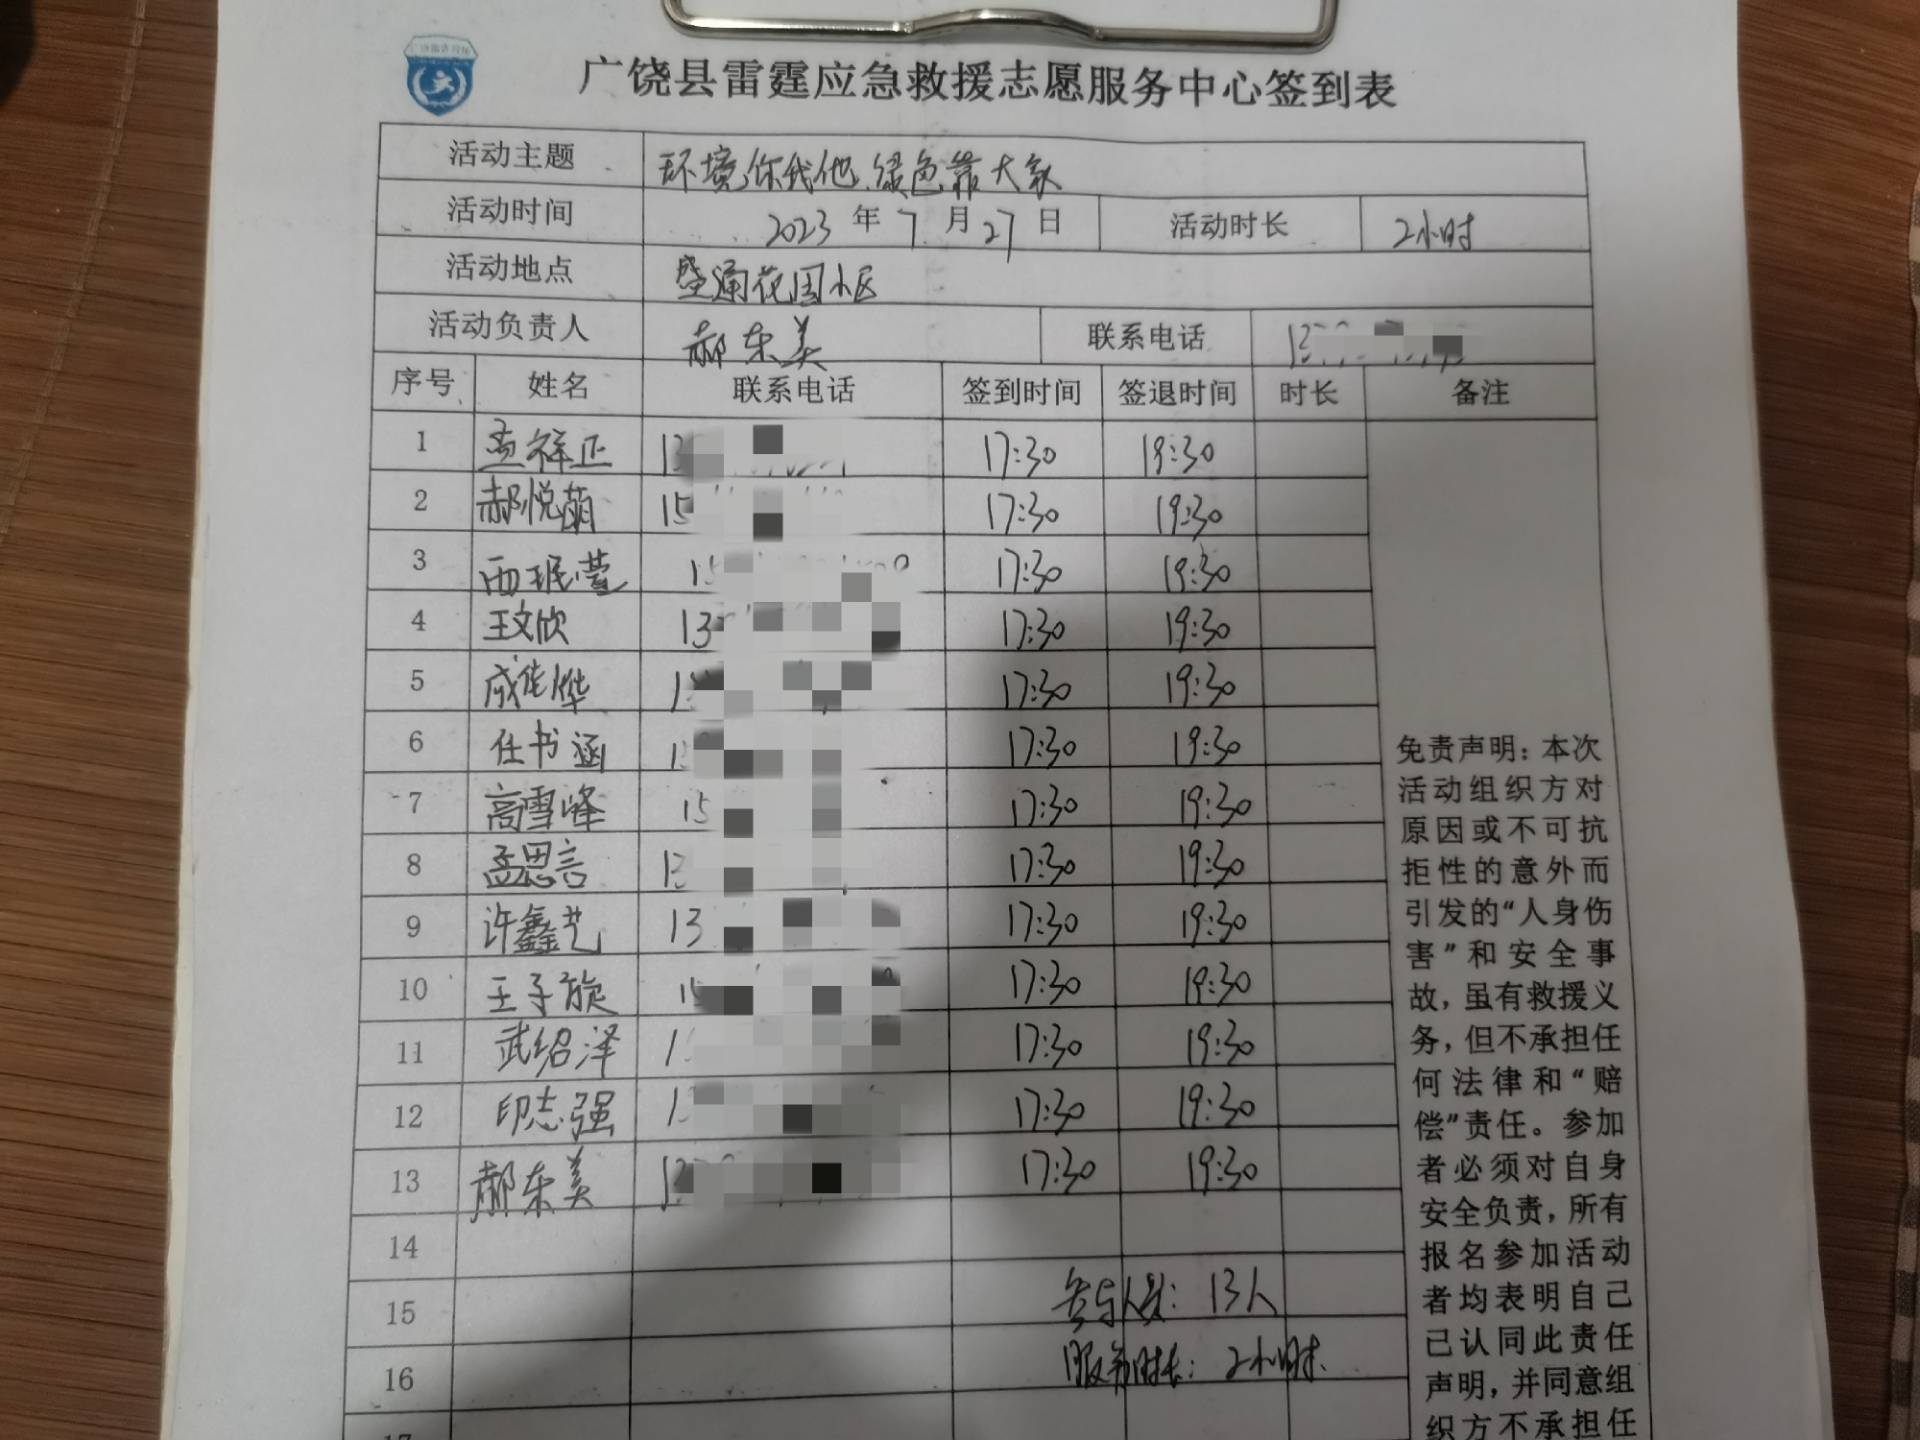 广饶县雷霆应急救援志愿服务中心签到表
活动主题 环境你我他,绿色靠大家
活动时间 2023年7月27日 活动时长 2小时
活动地点 盛通花园小区
活动负责人 郝东美 联系电话
序号 姓名 联系电话 签到时间 签退时间 时长 备注
1 祥正 13 17:30 19:30
2 郝悦萌 15 17:30 19:30
3 西珉莹 15 17:30 19:30
4 王文欣 13 17:30 19:30
5 成佳烨 17:30 19:30
6 任书涵 17:30 19:30
7 高雪峰 15 17:30 19:30
8 孟思言 13 17:30 19:30
9 许鑫艺 13 17:30 19:30
10 王子旋 17:30 19:30
11 武绍泽 17:30 19:30
12 印志强 17:30 19:30
13 郝东美 17:30 19:30
14
15 参与人员:13人
16 服务时长:2小时.
免责声明:本次
活动组织方对
原因或不可抗
拒性的意外而
引发的“人身伤
害”和安全事
故,虽有救援义
务,但不承担任
何法律和“赔
偿”责任。参加
者必须对自身
安全负责,所有
报名参加活动
者均表明自己
已认同此责任
声明,并同意组
织方不承担任